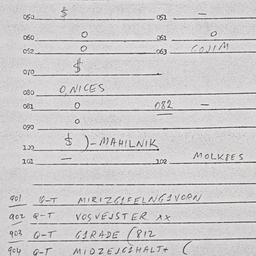 050 $ 051 —
060 0 061 0
062 0 063 COJIM
070 $
080 O,NICES
081 0 082 —
090 0
100 $ )-MAHILNIK
101 — 102 MOLKBES
901 Q-T MIRIZGIFELNGIVORN
902 Q-T VOSVEJSTER XX
903 Q-T GIRADE (812
904 Q-T MIDZEJGIHALT+ (